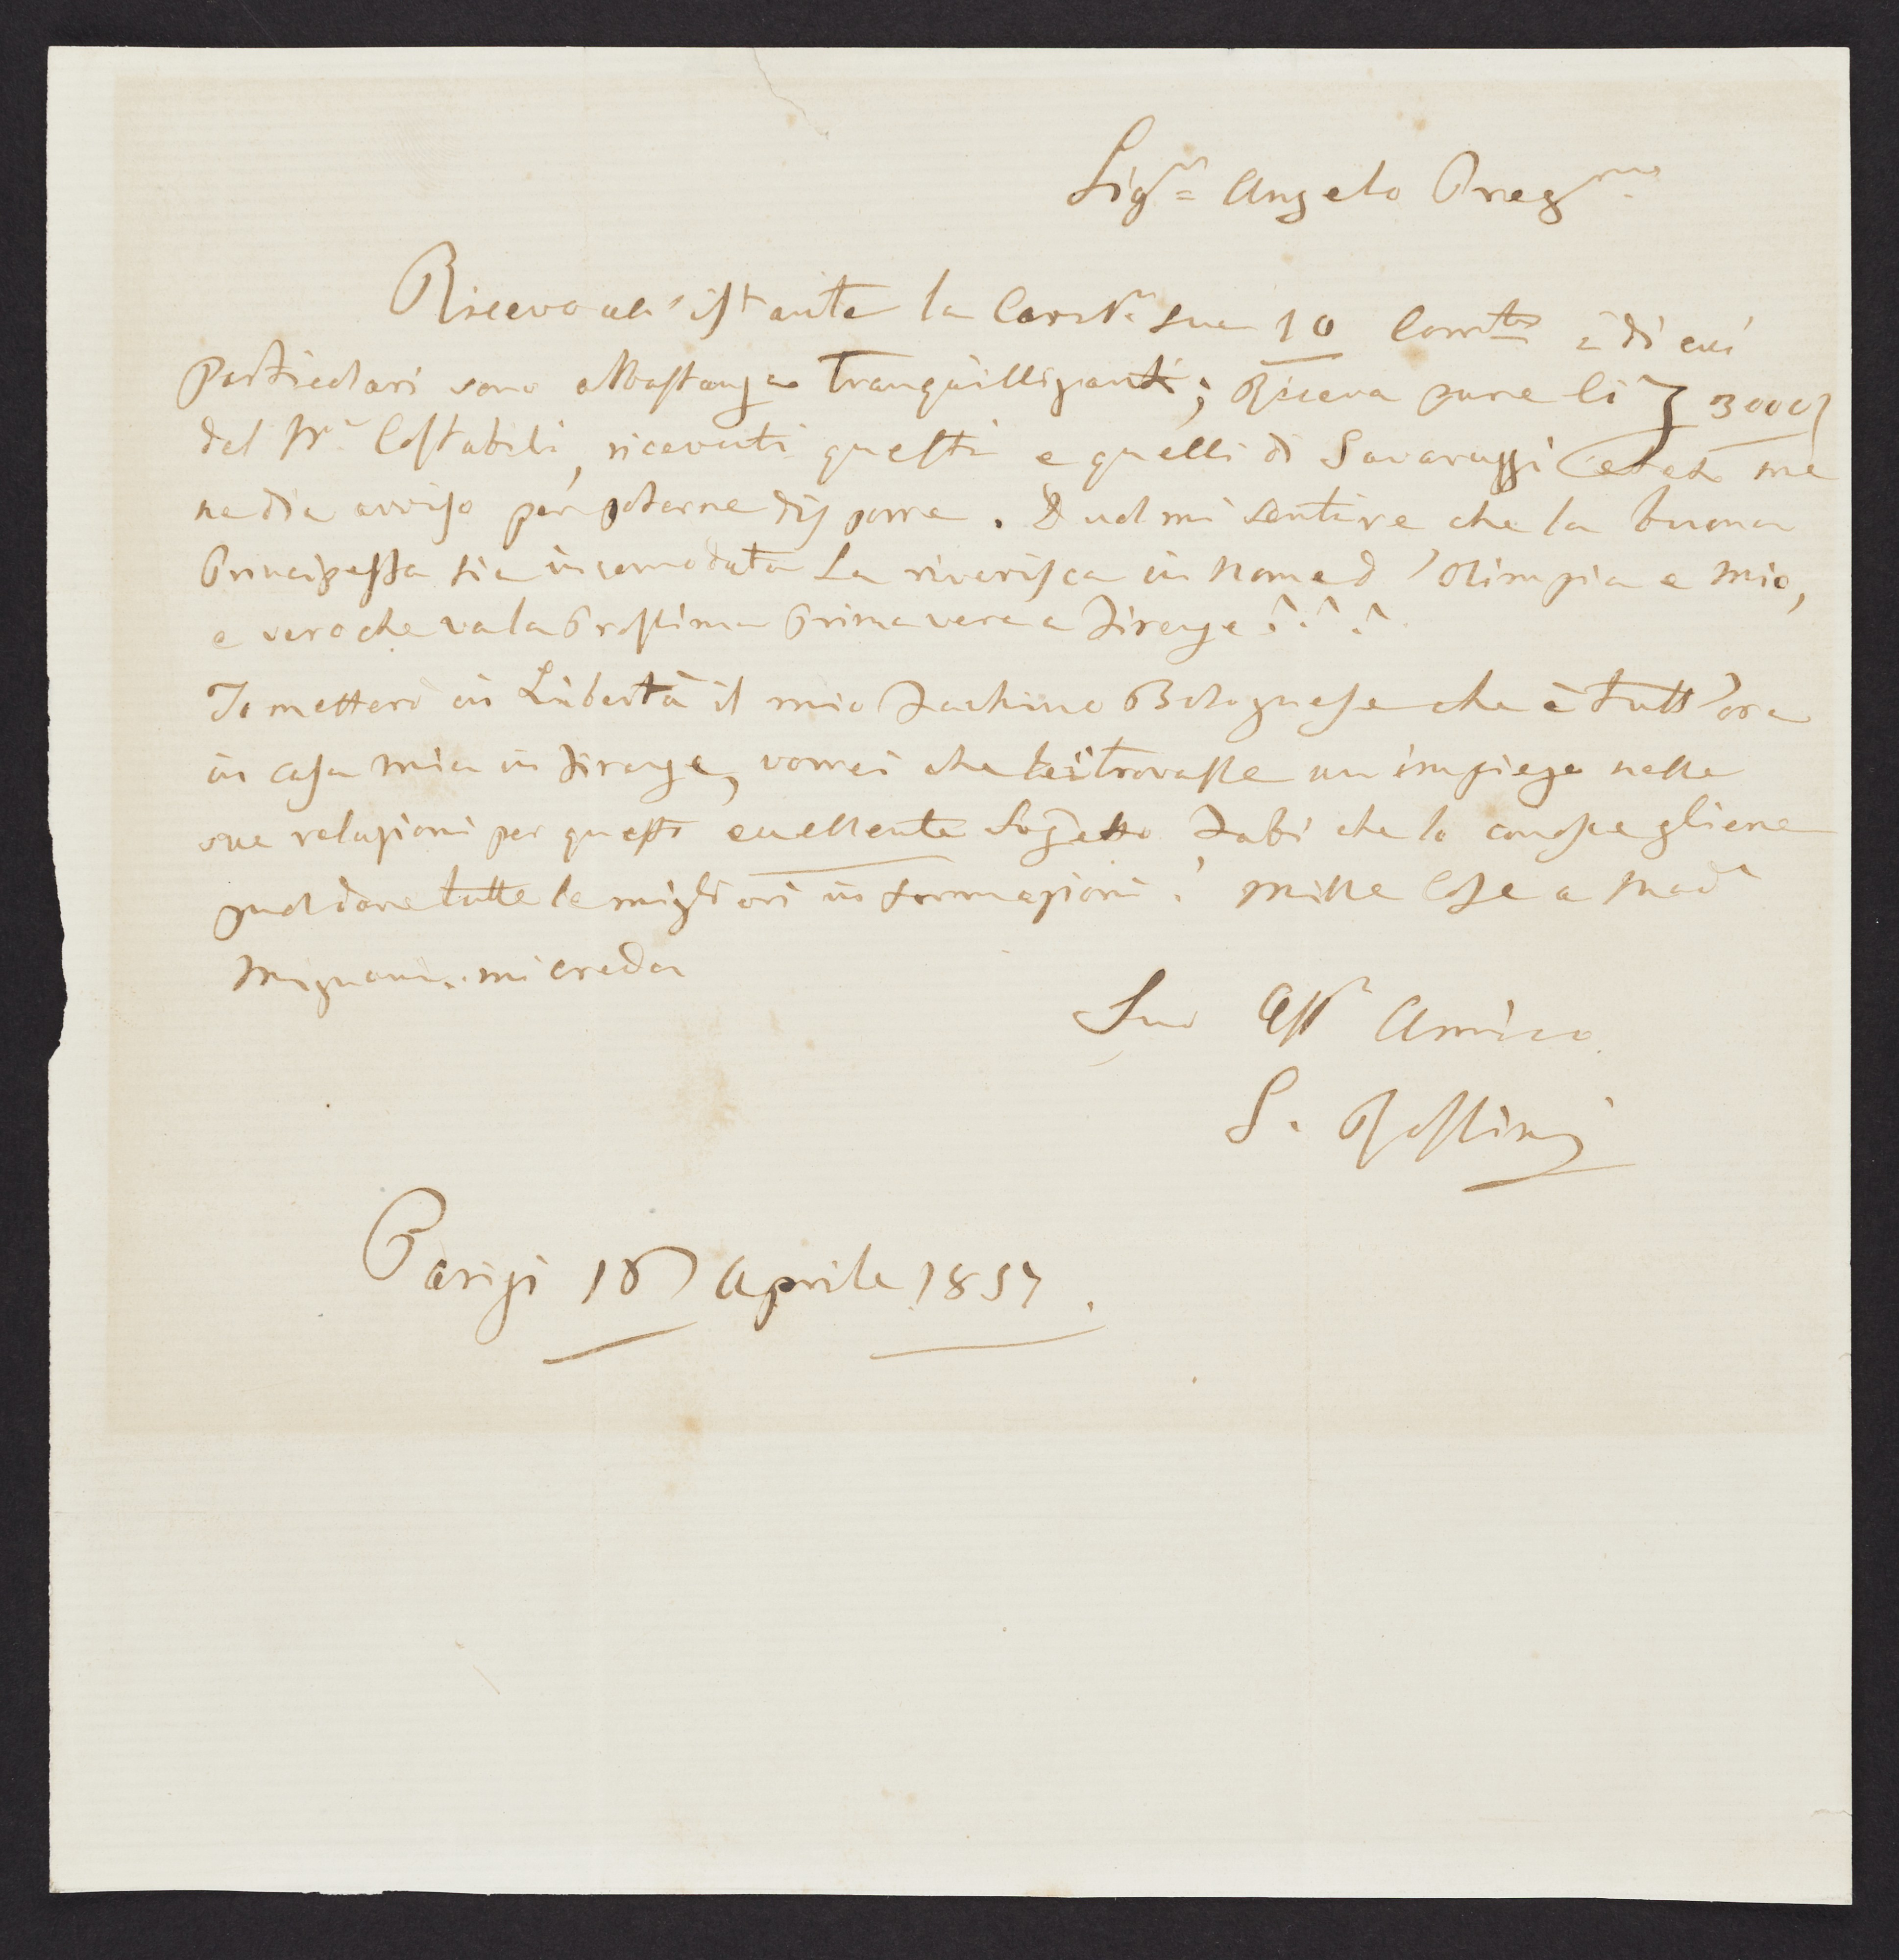 Sigr. Angelo Pregmo.
Ricevo all'istante la Carma. sua 10 Corrte. i di cui
particolari sono abbastanza tranquillizzanti; Riceva pure li 3000
del Mse. Costabili, ricevuti questi e quelli di Gavaruzzi me
ne dia avviso per poterne disporre. Duolmi sentire che la buona
Principessa sia incomodata La riverisca in Nome d'Olimpia e mio,
e vero che va la Prossima Primavera a Firenze???
Io metterò in Libertà il mio Fachino Bolognese che è tutt'ora
in casa mia in Firenze, vorrei che lei trovasse un impiego nelle
sue relazioni per questo eccellente Sogetto Fabi che lo conosce gliene
puol dare tutte le migliori informazioni! Mille Cose a Mad.
Mignani. mi creda
Suo Affo. Amico
G. Rossini
Parigi 16 Aprile 1857.